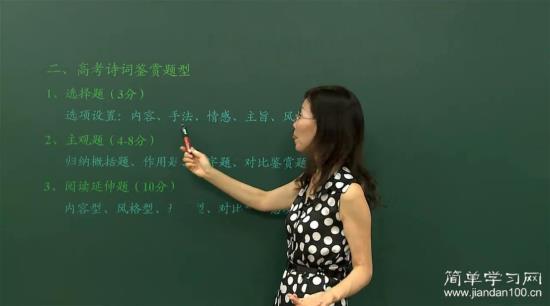 二、高考诗词鉴赏题型
1、选择题(3分)
选项设置:内容、手法、情感、主旨、风
2、主观题(4-8分)
归纳概括题、作用题 字题、对比鉴赏题
3、阅读延伸题(10分)
内容型、风格型、 型、对比
简单学习网
www.jiandan100.cn